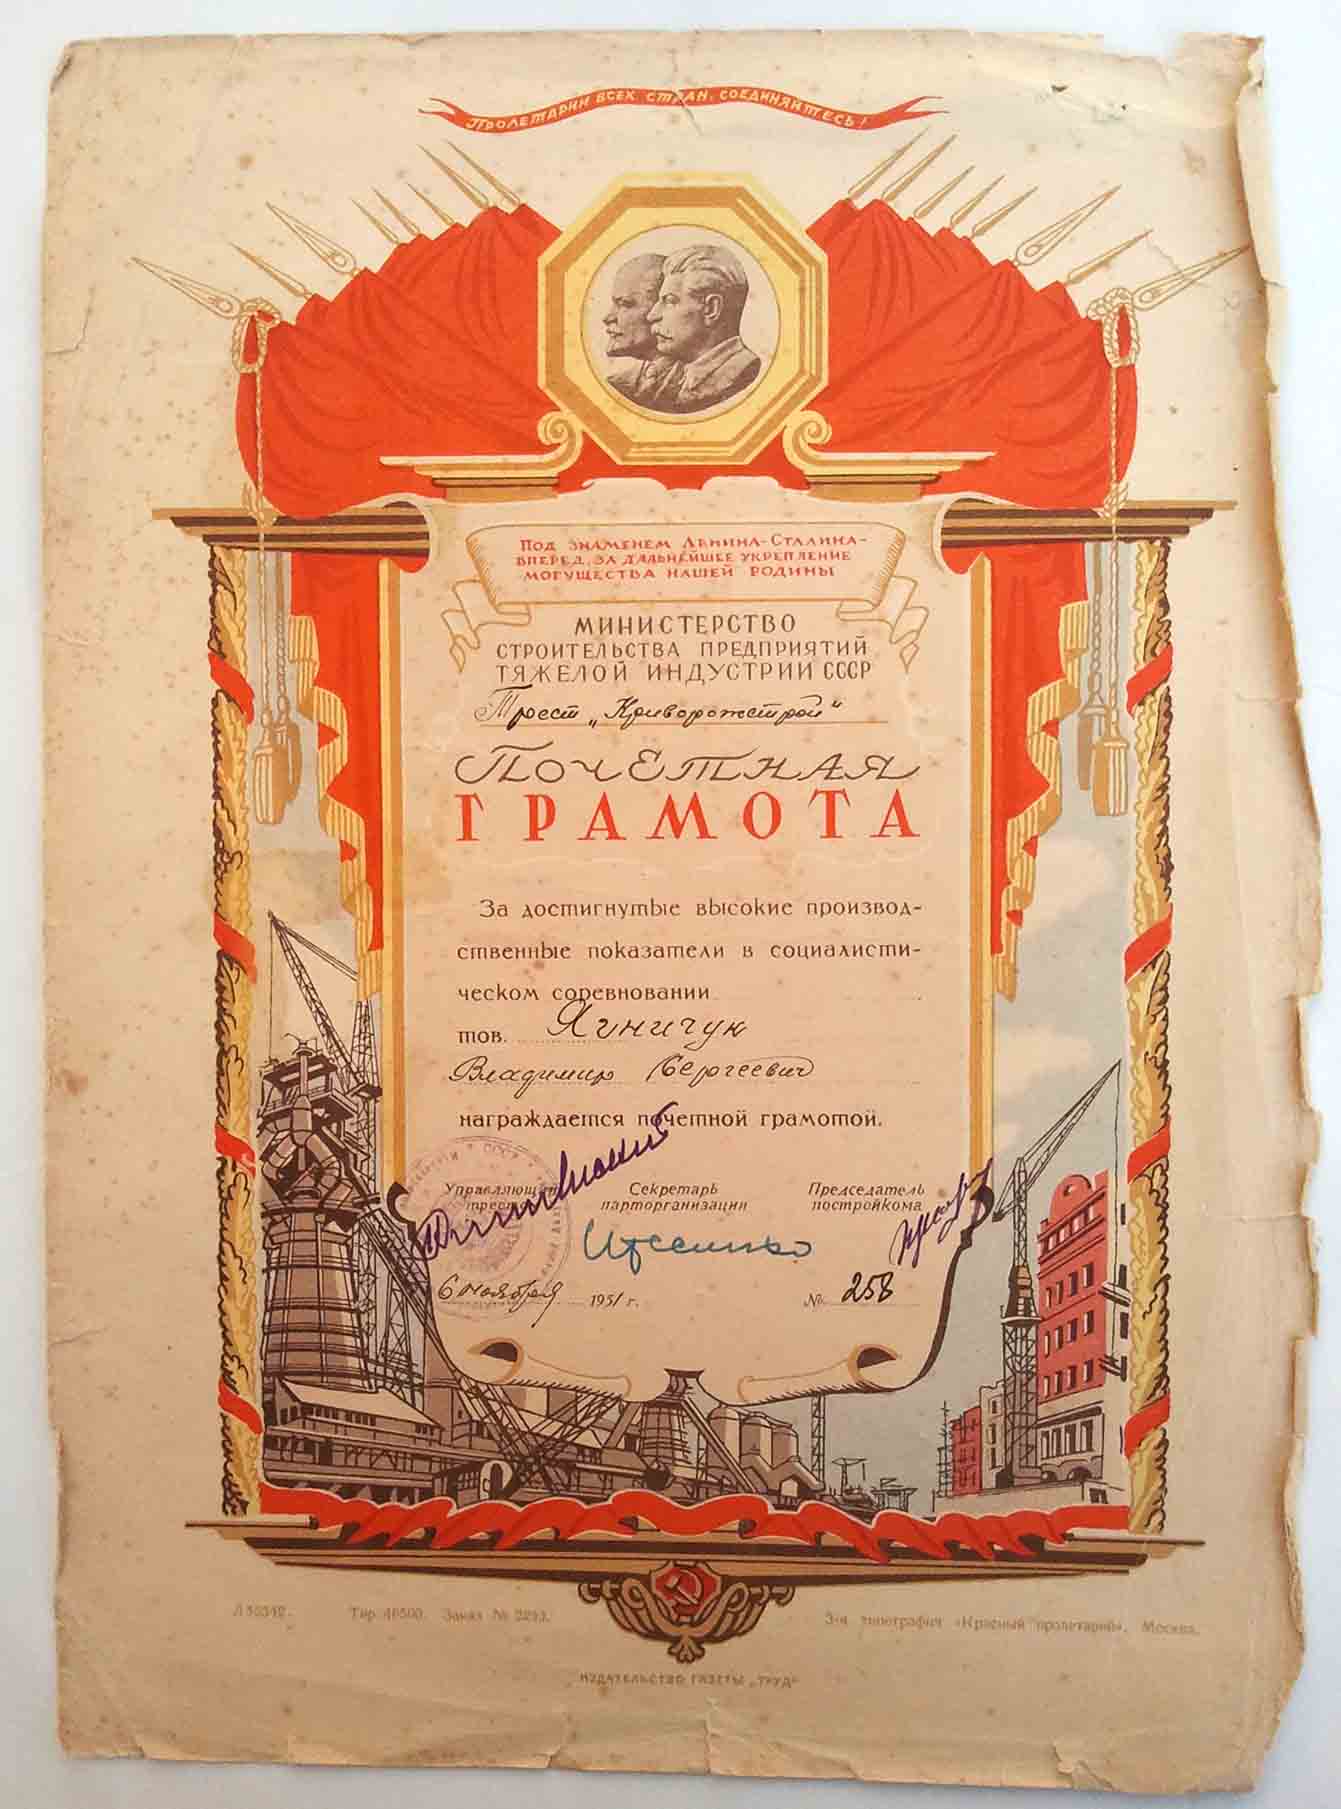 Пролетарии всех стран, соединяйтесь!
Под знаменем Ленина-Сталина-
вперед, за дальнейшее укрепление
могущества нашей родины
МИНИСТЕРСТВО
СТРОИТЕЛЬСТВА ПРЕДПРИЯТИЙ
ТЯЖЕЛОЙ ИНДУСТРИИ СССР
Трест „Криворожстрой"
ПОЧЕТНАЯ
ГРАМОТА
За достигнутые высокие производ-
ственные показатели в социалисти-
ческом соревновании
тов. Ягничук
Владимир Сергеевич
награждается почетной грамотой.
Управляющ
трест
Секретарь
парторганизации
Председатель
постройкома
6 ноября 1951 г.
№ 258
Л 55342. Тир. 46500. Заказ № 2293.
3-я типография «Красный пролетарий», Москва.
ИЗДАТЕЛЬСТВО ГАЗЕТЫ „ТРУД"